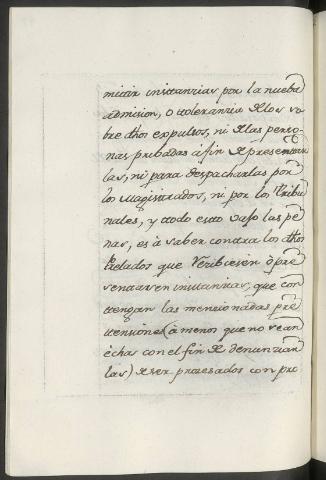 mitir instancias por la nueba
admision, o tolerancia de los so
bre dhos expulsos, ni de las perso-
nas pribadas à fin de presentar
las, ni para despacharlas por
los Magistrados, ni por los Tribu
nales, y todo esto vajo las pe
nas, es à saber contra los dhos
Prelados que recibiesen ò pre
sentasen instancias, que con
tengan las mencionadas pre
tensiones (à menos que no sean
echas con el fin de denunciar
las) de ser procesados con pro